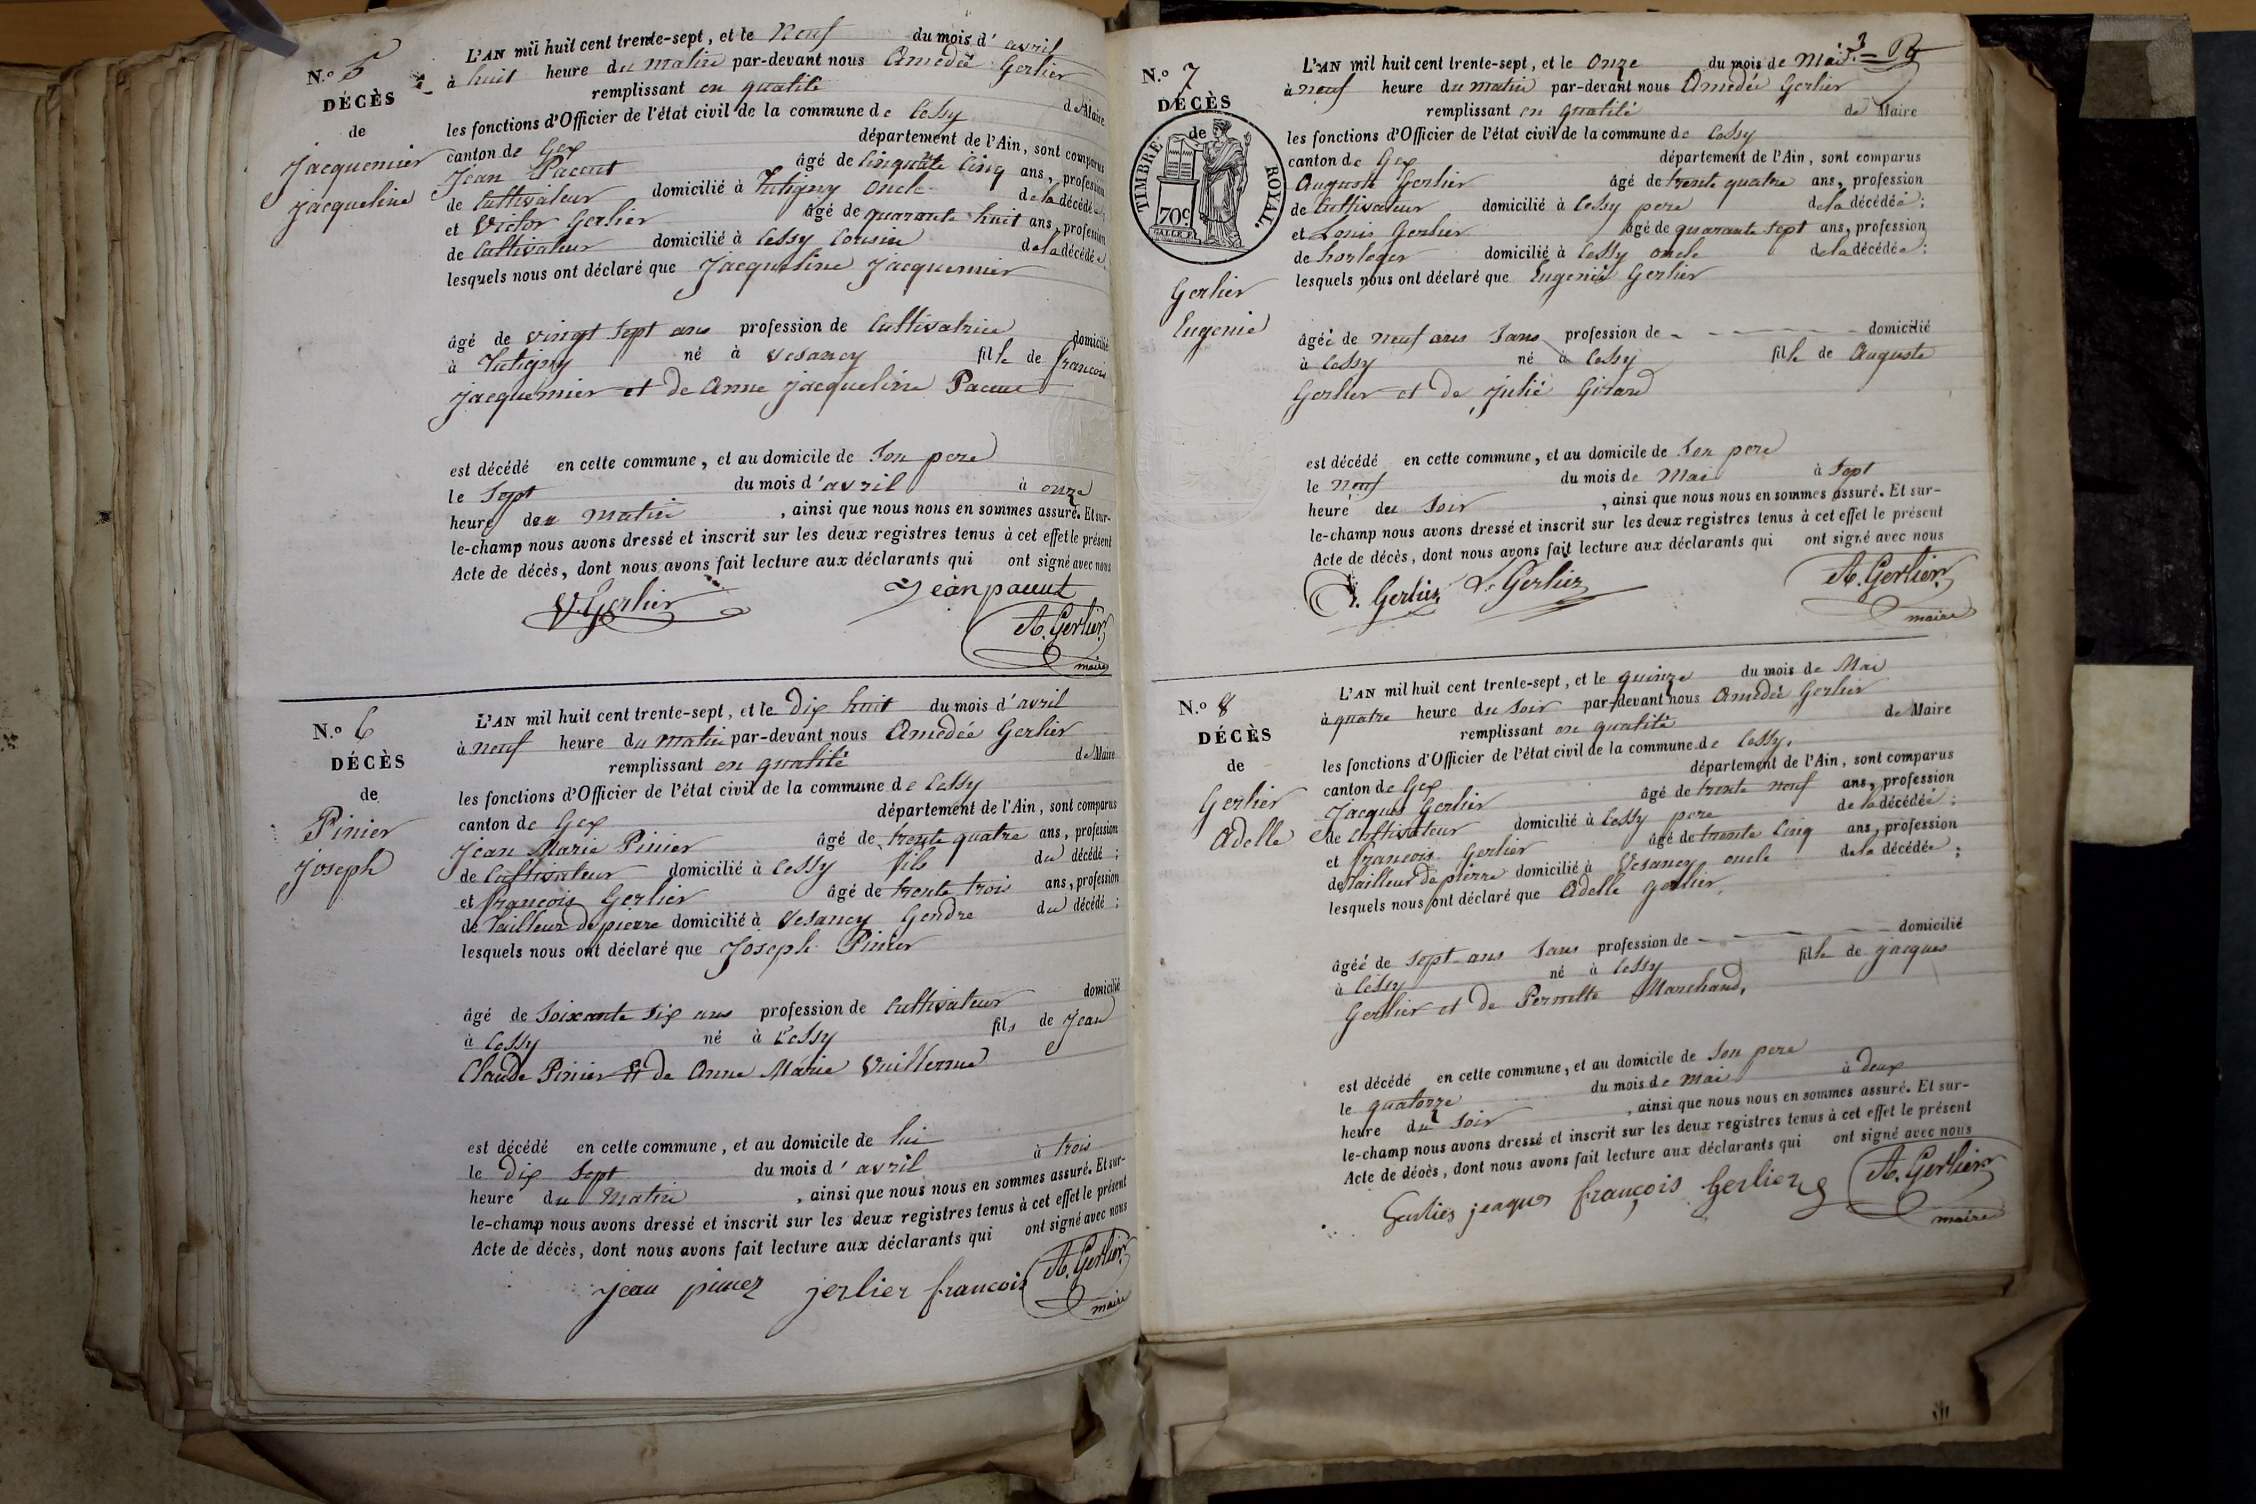 N.º 5
DÉCÈS
de
Jacquemier
Jacqueline
L'AN mil huit cent trente-sept, et le neuf du mois d'avril
à huit heure du matin par-devant nous Amedée Gerlier
remplissant en qualité de Maire
les fonctions d'Officier de l'état civil de la commune de Cessy
canton de Gex département de l'Ain, sont comparus
Jean Pacaut âgé de cinquante cinq ans, profession
de Cultivateur domicilié à Tutigny oncle de la décédée
et Victor Gerlier âgé de quarante huit ans, profession
de Cultivateur domicilié à Cessy Cousin de la décédée
lesquels nous ont déclaré que Jacqueline Jacquemier
âgé de vingt sept ans profession de Cultivatrice domicilié
à Tutigny né à Vesancy fille de francois
Jacquemier et de Anne Jacqueline
est décédé en cette commune, et au domicile de son pere
le sept du mois d'avril à onze
heure du matin, ainsi que nous nous en sommes assuré. Et sur-
le-champ nous avons dressé et inscrit sur les deux registres tenus à cet effet le présent
Acte de décès, dont nous avons fait lecture aux déclarants qui ont signé avec nous
V. Gerlier Jean pacaut
A. Gerlier
maire
N.º 6
DÉCÈS
de
Pinier
Joseph
L'AN mil huit cent trente-sept, et le Dix huit du mois d'avril
à neuf heure du matin par-devant nous Amedée Gerlier
remplissant en qualité de Maire
les fonctions d'Officier de l'état civil de la commune de Cessy
canton de Gex département de l'Ain, sont comparus
Jean Marie Pinier âgé de trente quatre ans, profession
de Cultivateur domicilié à Cessy fils du décédé ;
et francois Gerlier âgé de trente trois ans, profession
de Tailleur de pierre domicilié à Vesancy Gendre du décédé ;
lesquels nous ont déclaré que Joseph Pinier
âgé de soixante six ans profession de Cultivateur domicilié
à Cessy né à Cessy fils de Jean
Claude Pinier et de Anne Marie Vuillerme
est décédé en cette commune, et au domicile de lui
le Dix sept du mois d'avril à trois
heure du matin, ainsi que nous nous en sommes assuré. Et sur-
le-champ nous avons dressé et inscrit sur les deux registres tenus à cet effet le présent
Acte de décès, dont nous avons fait lecture aux déclarants qui ont signé avec nous
jean pinier jerlier francois A. Gerlier
maire
3
N.º 7
DÉCÈS
de
TIMBRE ROYAL.
70c
Gerlier
Eugenie
L'AN mil huit cent trente-sept, et le onze du mois de Mai
à neuf heure du matin par-devant nous Amedée Gerlier
remplissant en qualité de Maire
les fonctions d'Officier de l'état civil de la commune de Cessy
canton de Gex département de l'Ain, sont comparus
Auguste Gerlier âgé de trente quatre ans, profession
de Cultivateur domicilié à Cessy pere de la décédée ;
et Louis Gerlier âgé de quarante sept ans, profession
de horloger domicilié à Cessy oncle de la décédée ;
lesquels nous ont déclaré que Eugenié Gerlier
âgéé de neuf ans sans profession de - domicilié
à Cessy né à Cessy fille de Auguste
Gerlier et de Julié Girard
est décédé en cette commune, et au domicile de son pere
le neuf du mois de Mai à sept
heure du soir, ainsi que nous nous en sommes assuré. Et sur-
le-champ nous avons dressé et inscrit sur les deux registres tenus à cet effet le présent
Acte de décès, dont nous avons fait lecture aux déclarants qui ont signé avec nous
Gerlier L. Gerlier A. Gerlier
maire
N.º 8
DÉCÈS
de
Gerlier
Adelle
L'AN mil huit cent trente-sept, et le quinze du mois de Mai
à quatre heure du soir par-devant nous Amedée Gerlier
remplissant en qualité de Maire
les fonctions d'Officier de l'état civil de la commune de Cessy.
canton de Gex département de l'Ain, sont comparus
Jacques Gerlier âgé de trente neuf ans, profession
de Cultivateur domicilié à Cessy pere de la décédée ;
et francois Gerlier âgé de trente cinq ans, profession
de Tailleur de pierre domicilié à Vesancy oncle de la décédée ;
lesquels nous ont déclaré que Adelle Gerlier,
âgéé de sept ans sans profession de - domicilié
à Cessy né à Cessy fille de jacques
Gerlier et de Pernette Marchand,
est décédé en cette commune, et au domicile de son pere
le quatorze du mois de mai à deux
heure du soir, ainsi que nous nous en sommes assuré. Et sur-
le-champ nous avons dressé et inscrit sur les deux registres tenus à cet effet le présent
Acte de décès, dont nous avons fait lecture aux déclarants qui ont signé avec nous
Gerlier jeaques françois Gerlier A. Gerlier
maire